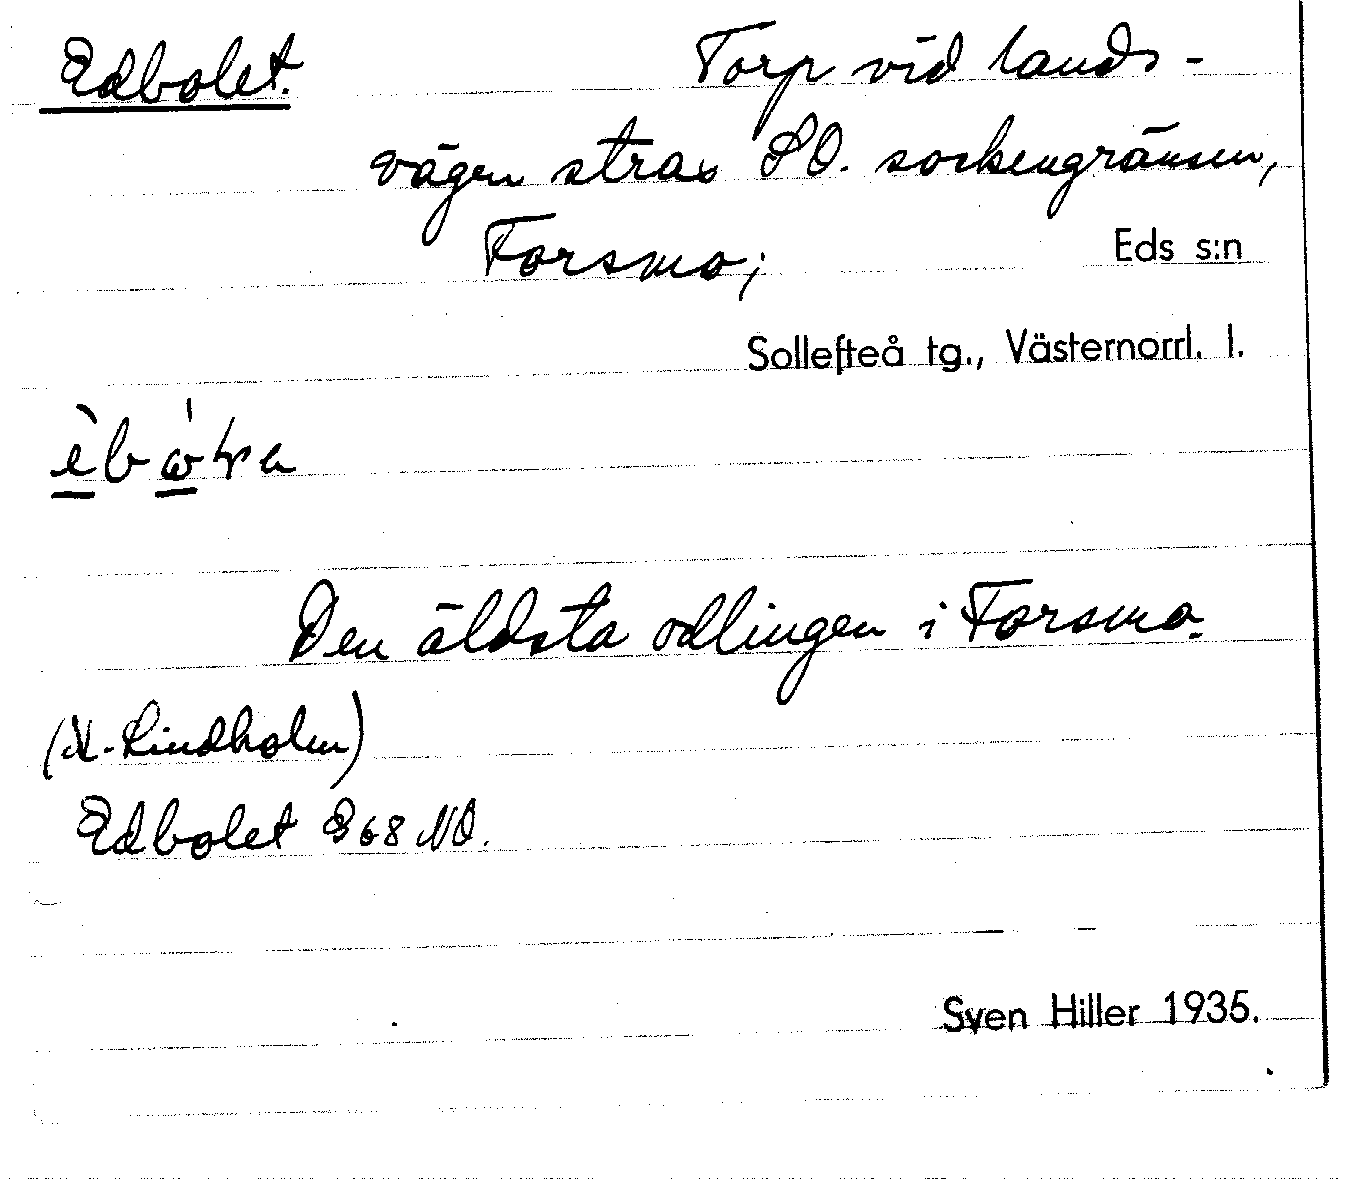 Edbolet. Torp vid lands-
vägen strax SO. sockengränsen,
Forsmo; Eds s:n
Sollefteå tg., Västernorrl. l.
Den äldsta odlingen i Forsmo.
Lindholm)
Edbolet 868 NO.
Sven Hiller 1935.